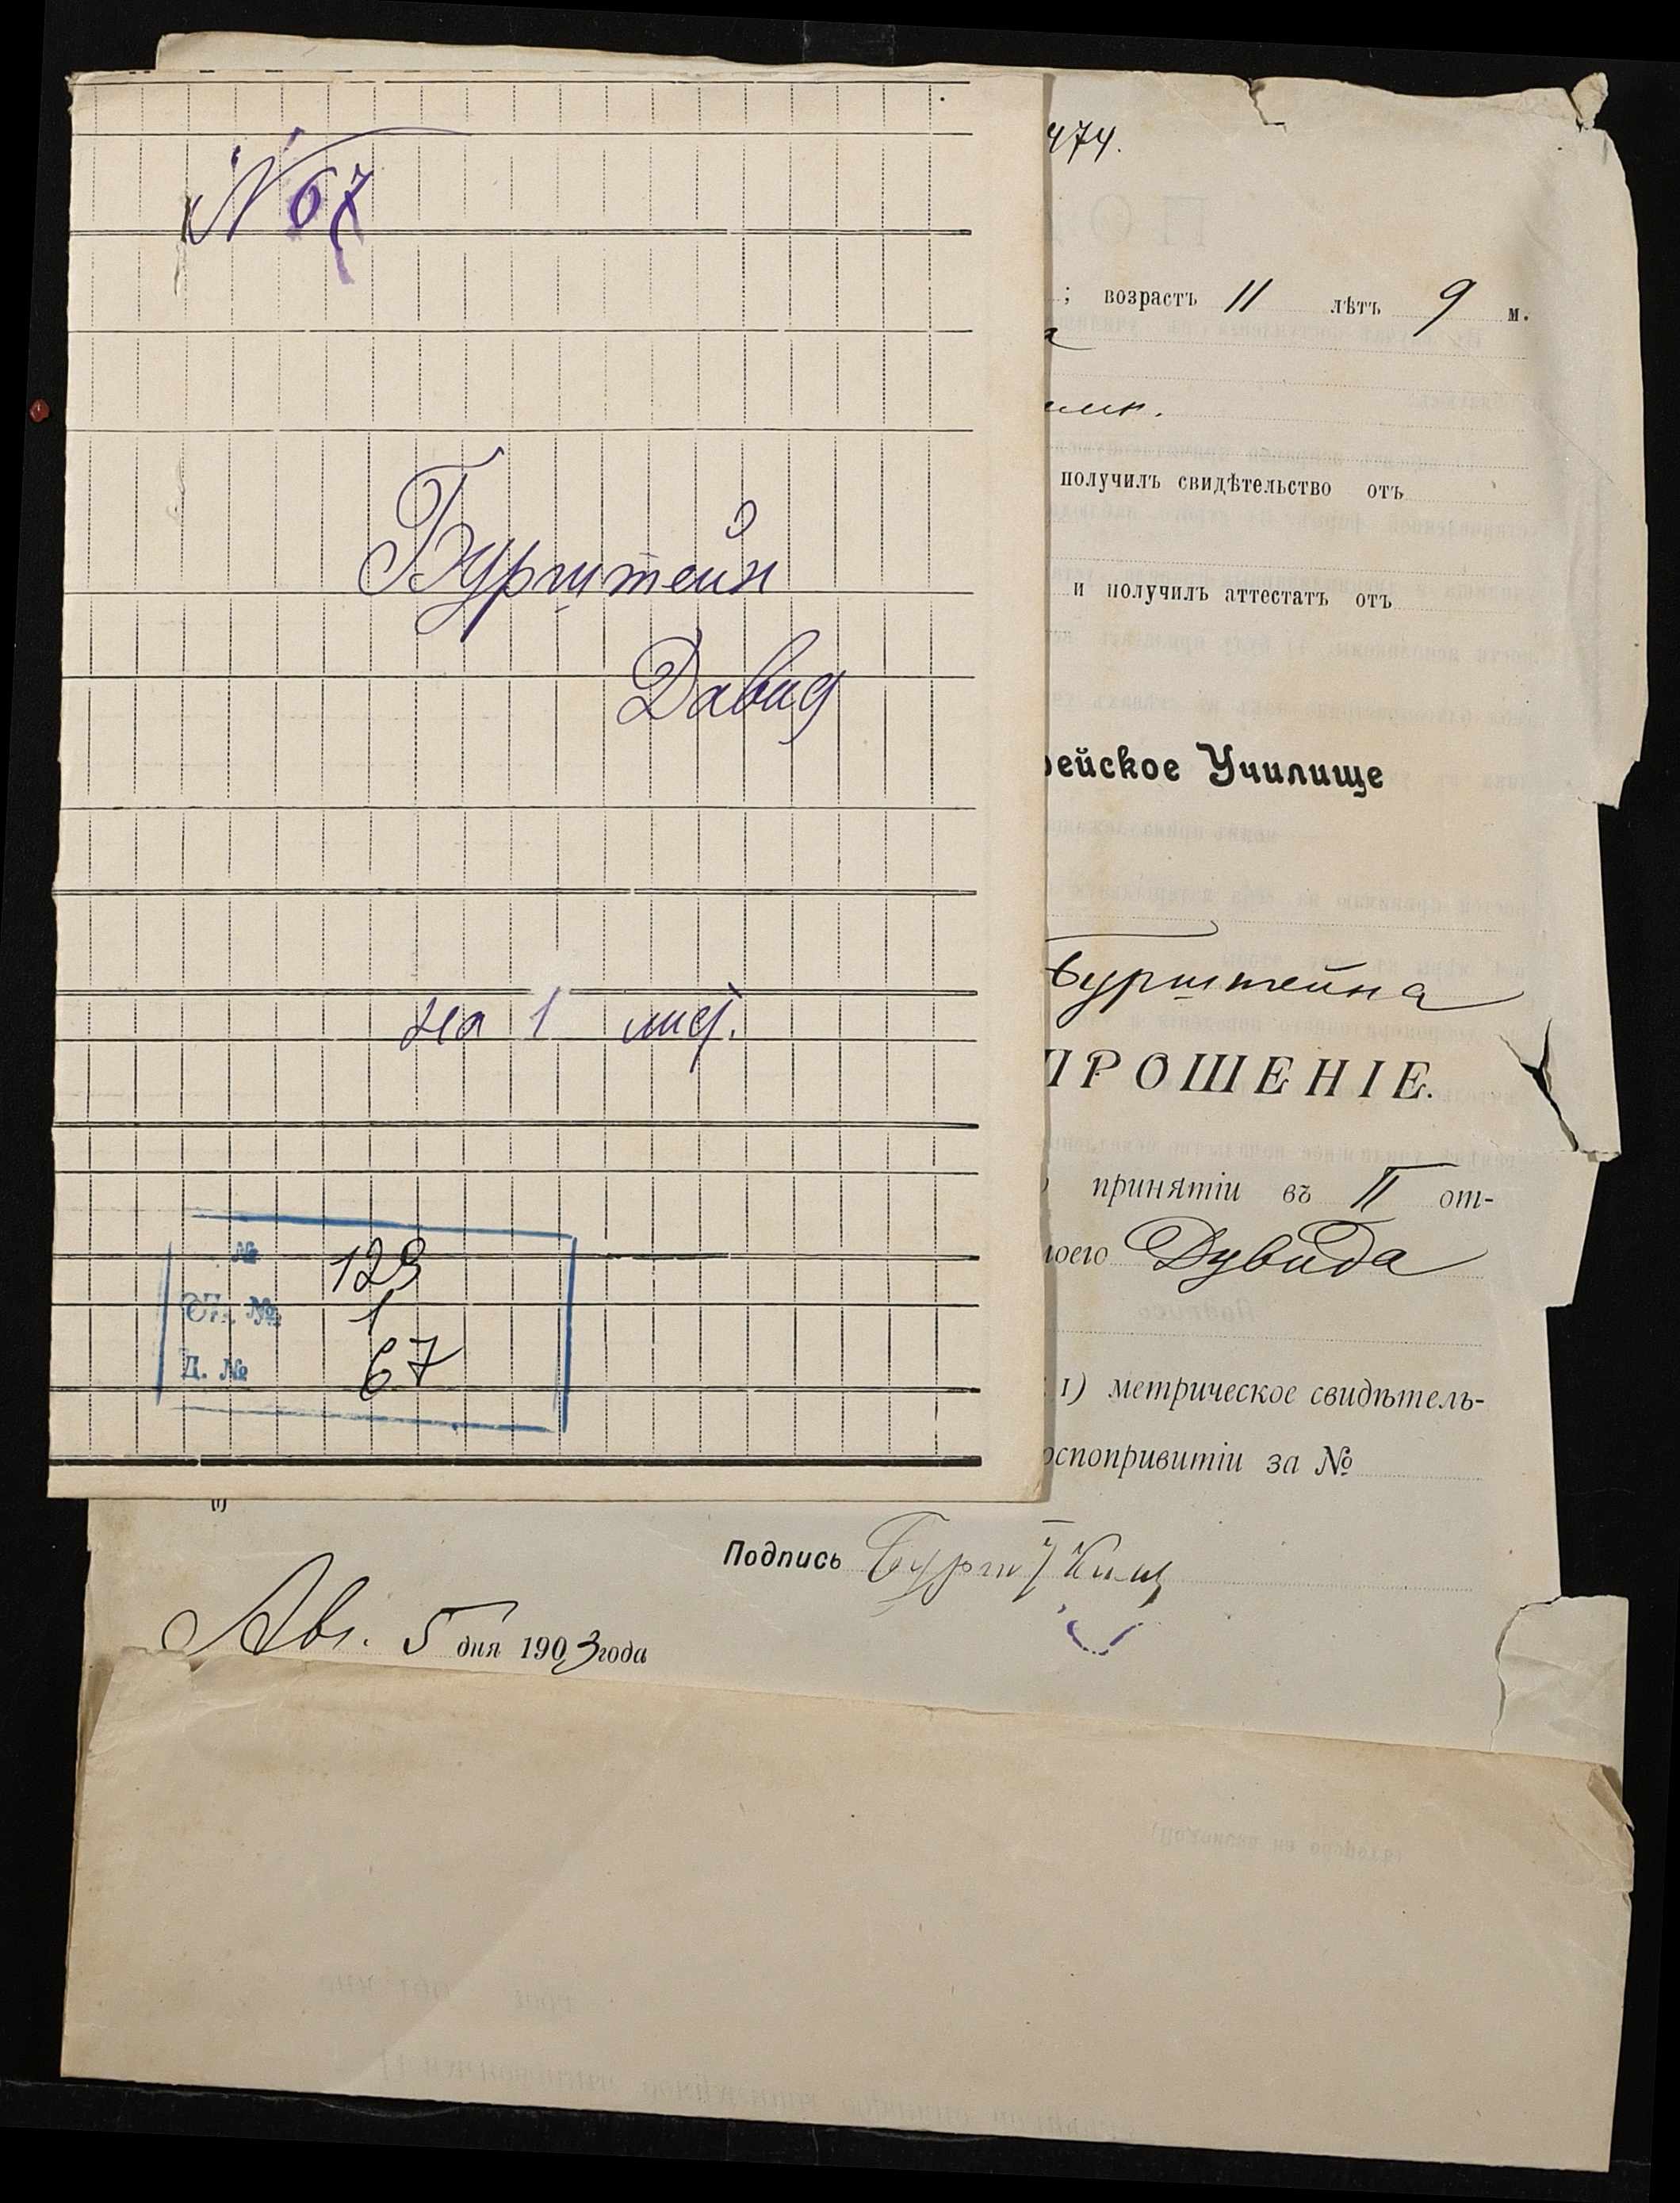 № 67
Бурштейн
Давид
на 1 лист.
№ 123
Оп. № 1
Д. № 67
474.
; возрастъ 11 лѣтъ 9 м.
получилъ свидѣтельство отъ
и получилъ аттестатъ отъ
рейское Училище
Бурштейна
ПРОШЕНІЕ.
принятіи въ II от-
моего Дувида
1) метрическое свидѣтель-
оспопривитіи за №
Подпись
Авг. 5 дня 1903 года